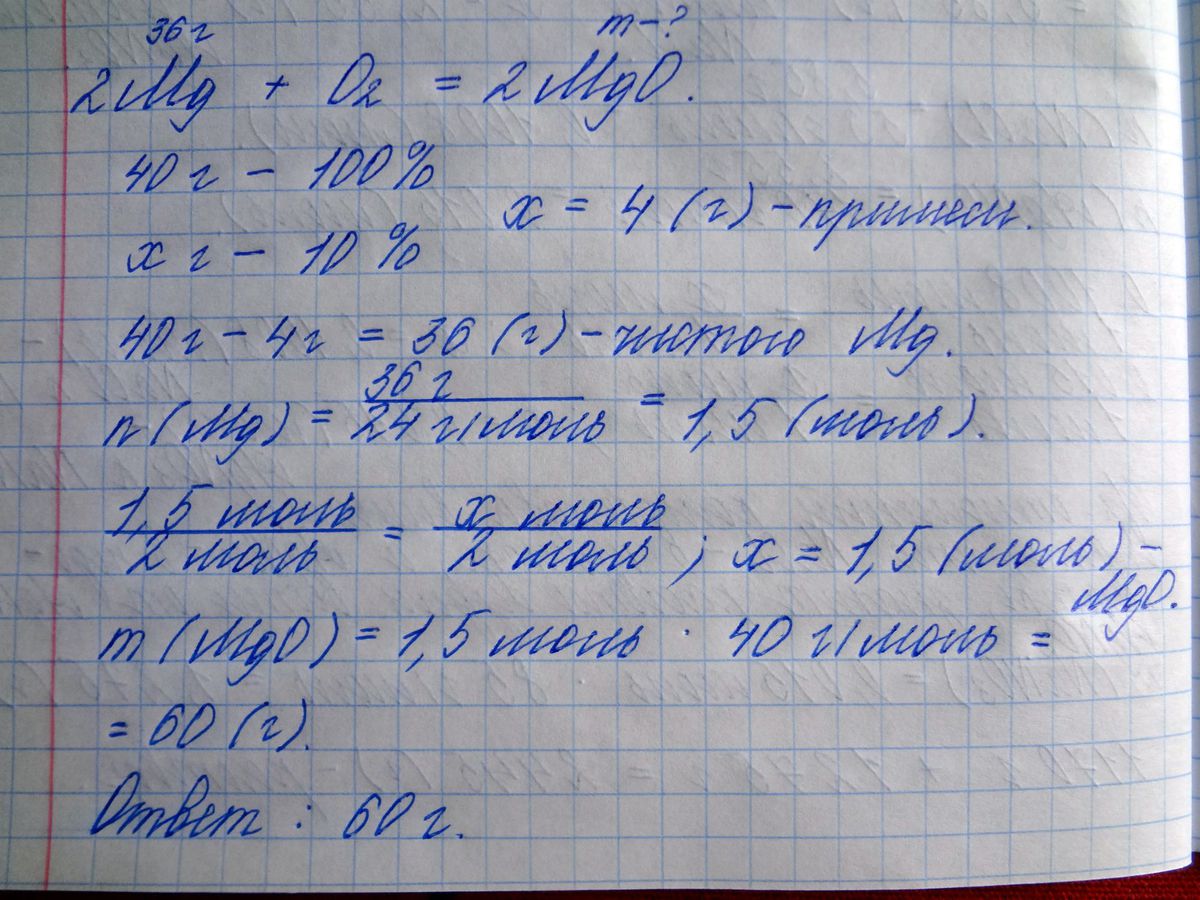 36 г m - ?
2Mg + O₂ = 2MgO.
40 г - 100%
x = 4 (г) - примеси.
x г - 10 %
40 г - 4 г = 36 (г) - чистого Mg.
36 г
n (Mg) = 24 г/моль = 1,5 (моль).
1,5 моль x моль
2 моль = 2 моль ; x = 1,5 (моль) -
MgO.
m (MgO) = 1,5 моль · 40 г/моль =
= 60 (г).
Ответ : 60 г.